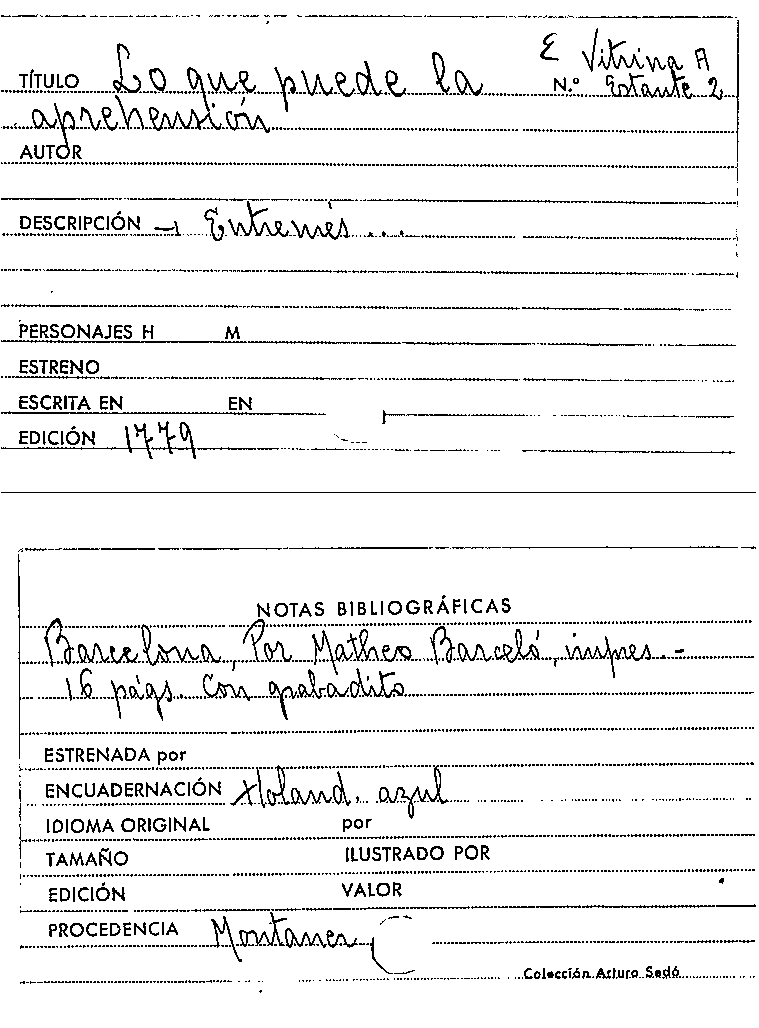 E Vitrina A
TÍTULO Lo que puede la N.º Estante 2
aprehensión
AUTOR
DESCRIPCIÓN → Entremés...
PERSONAJES H M
ESTRENO
ESCRITA EN EN
EDICIÓN 1779
NOTAS BIBLIOGRÁFICAS
Barcelona, Por Matheo Barceló, impres.-
16 págs. Con grabadito
ESTRENADA por
ENCUADERNACIÓN Holand. azul
IDIOMA ORIGINAL por
TAMAÑO ILUSTRADO POR
EDICIÓN VALOR
PROCEDENCIA Montaner
Colección Arturo Sedó